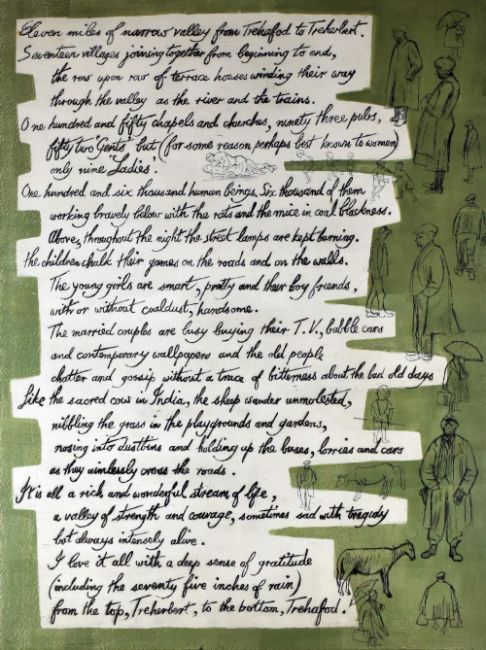 Eleven miles of narrow valley from Trehafod to Treherbert.
Seventeen villages joining together from beginning to end,
the row upon row of terrace houses winding their way
through the valley as the river and the trains.
One hundred and fifty chapels and churches, ninety three pubs,
fifty two 'Gents' but (for some reason perhaps best known to women)
only nine 'Ladies'.
One hundred and six thousand human beings, Six thousand of them
working bravely below with the rats and the mice in coal blackness.
Above, throughout the night the street lamps are kept burning.
the children chalk their games on the roads and on the walls.
The young girls are smart, pretty and their boy friends,
with or without coaldust, handsome.
The married couples are busy buying their T.V., bubble cars
and contemporary wallpapers and the old people
chatter and gossip without a trace of bitterness about the bad old days
Like the sacred cow in India, the sheep wander unmolested,
nibbling the grass in the playgrounds and gardens,
nosing into dustbins and holding up the buses, lorries and cars
as they aimlessly cross the roads.
It is all a rich and wonderful stream of life,
a valley of strength and courage, sometimes sad with tragedy
but always intensely alive.
I love it all with a deep sense of gratitude
(including the seventy five inches of rain)
from the top, Treherbert, to the bottom, Trehafod.